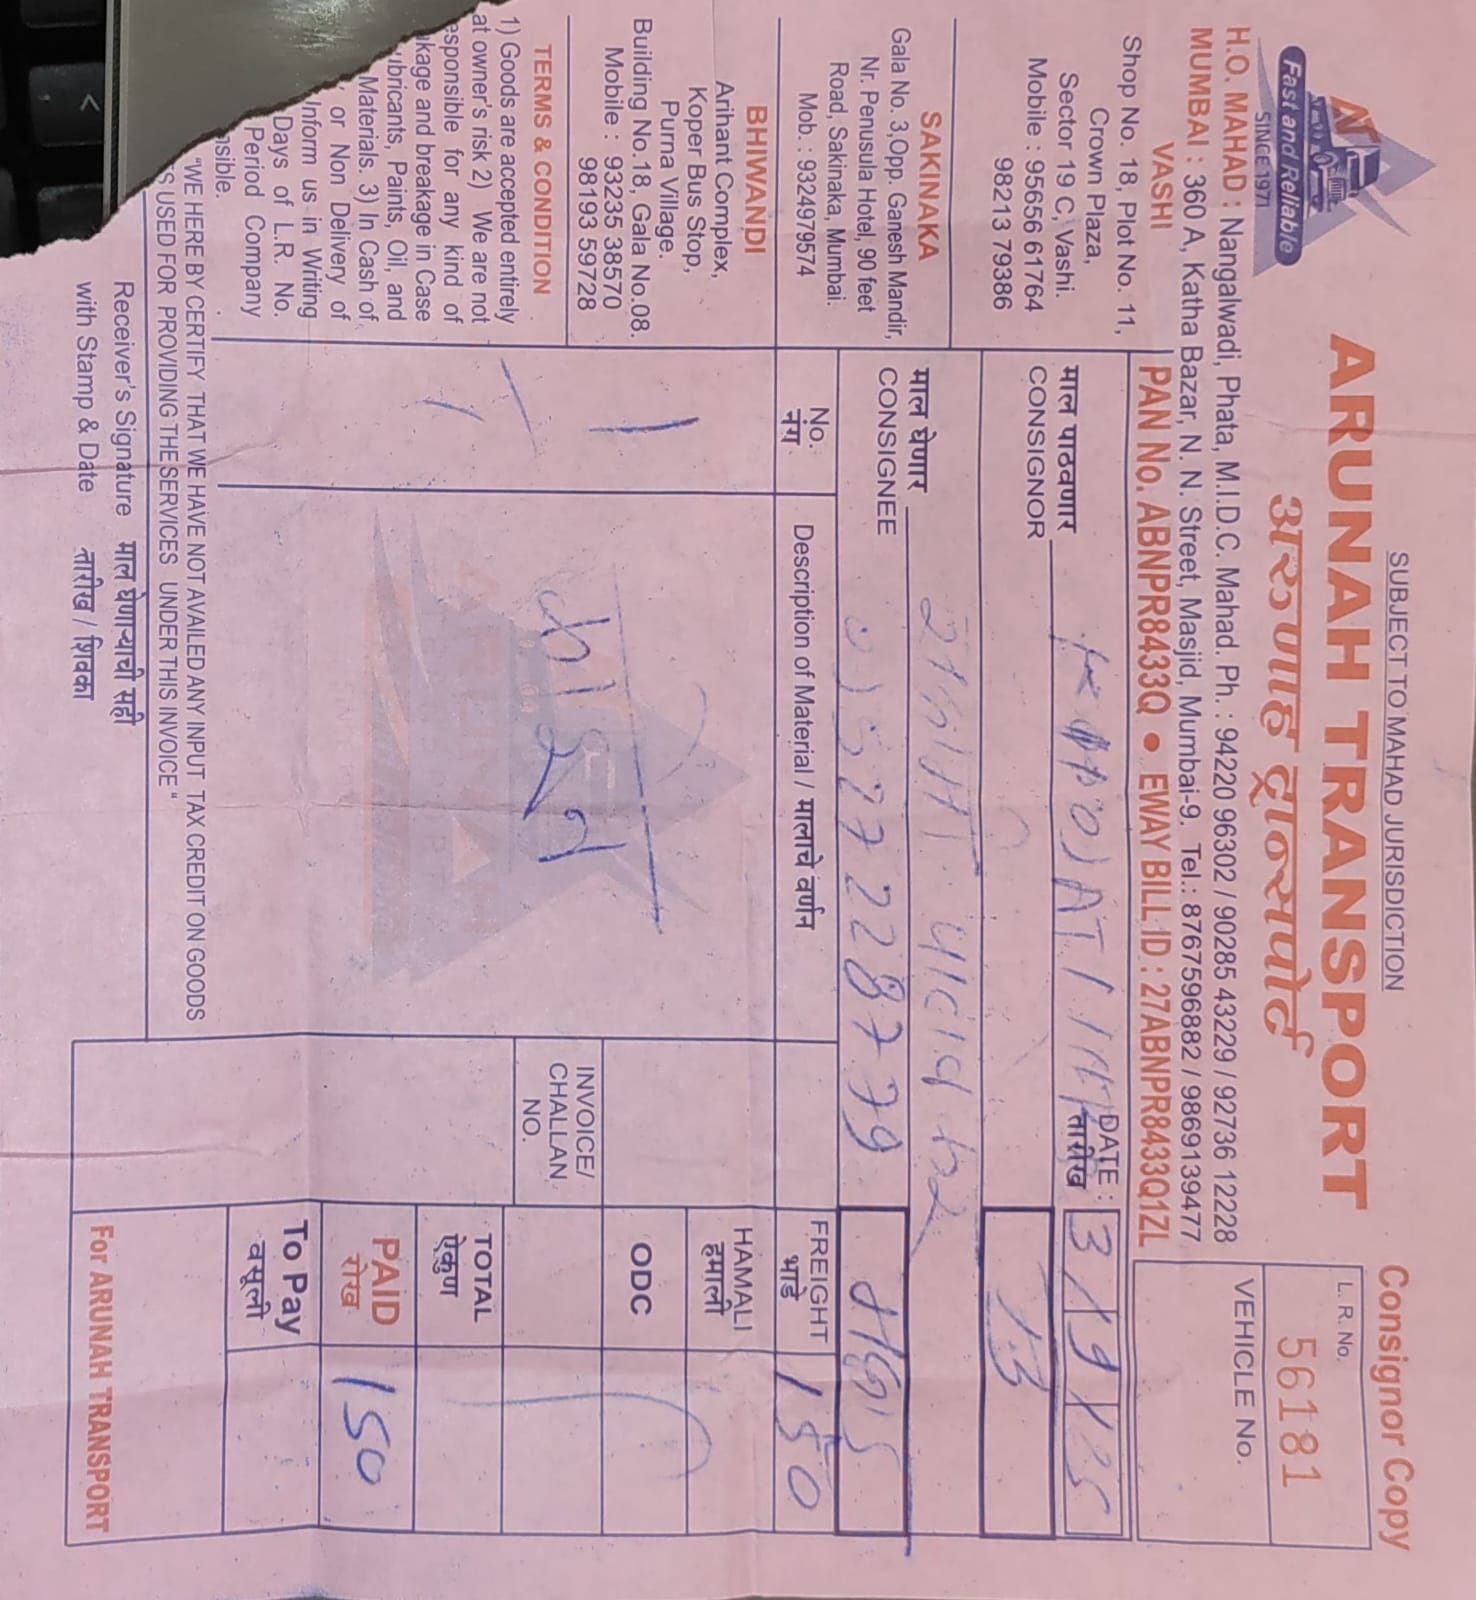 SUBJECT TO MAHAD JURISDICTION
Consignor Copy
Fast and Reliable
SINCE 1971
ARUNAH TRANSPORT
अरुणाह ट्रान्सपोर्ट
L. R. No.
56181
VEHICLE No.
H.O. MAHAD : Nangalwadi, Phata, M.I.D.C. Mahad. Ph. : 94220 96302 / 90285 43229 / 92736 12228
MUMBAI : 360 A, Katha Bazar, N. N. Street, Masjid, Mumbai-9. Tel.: 8767596882 / 9869139477
PAN No. ABNPR8433Q ● EWAY BILL ID : 27ABNPR8433Q1ZL
VASHI
Shop No. 18, Plot No. 11,
Crown Plaza,
Sector 19 C, Vashi.
Mobile : 95656 61764
98213 79386
SAKINAKA
Gala No. 3,Opp. Ganesh Mandir,
Nr. Penusula Hotel, 90 feet
Road, Sakinaka, Mumbai.
Mob. : 9324979574
BHIWANDI
Arihant Complex,
Koper Bus Stop,
Purna Village.
Building No.18, Gala No.08.
Mobile : 93235 38570
98193 59728
TERMS & CONDITION
1) Goods are accepted entirely
at owner's risk 2) We are not
esponsible for any kind of
kage and breakage in Case
ubricants, Paints, Oil, and
Materials. 3) In Cash of
or Non Delivery of
Inform us in Writing
Days of L.R. No.
Period Company
sible.
माल पाठवणार
CONSIGNOR
DATE :
तारीख
3/9/25
माल घेणार
CONSIGNEE
No.
नंग
Description of Material / मालाचे वर्णन
1
FREIGHT
भाडे
150
HAMALI
हमाली
ODC
INVOICE/
CHALLAN
NO.
TOTAL
ऐकुण
PAID
रोख
150
To Pay
वसूली
"WE HERE BY CERTIFY THAT WE HAVE NOT AVAILED ANY INPUT TAX CREDIT ON GOODS
S USED FOR PROVIDING THE SERVICES UNDER THIS INVOICE"
Receiver's Signature माल घेणाऱ्याची सही
with Stamp & Date तारीख / शिक्का
For ARUNAH TRANSPORT